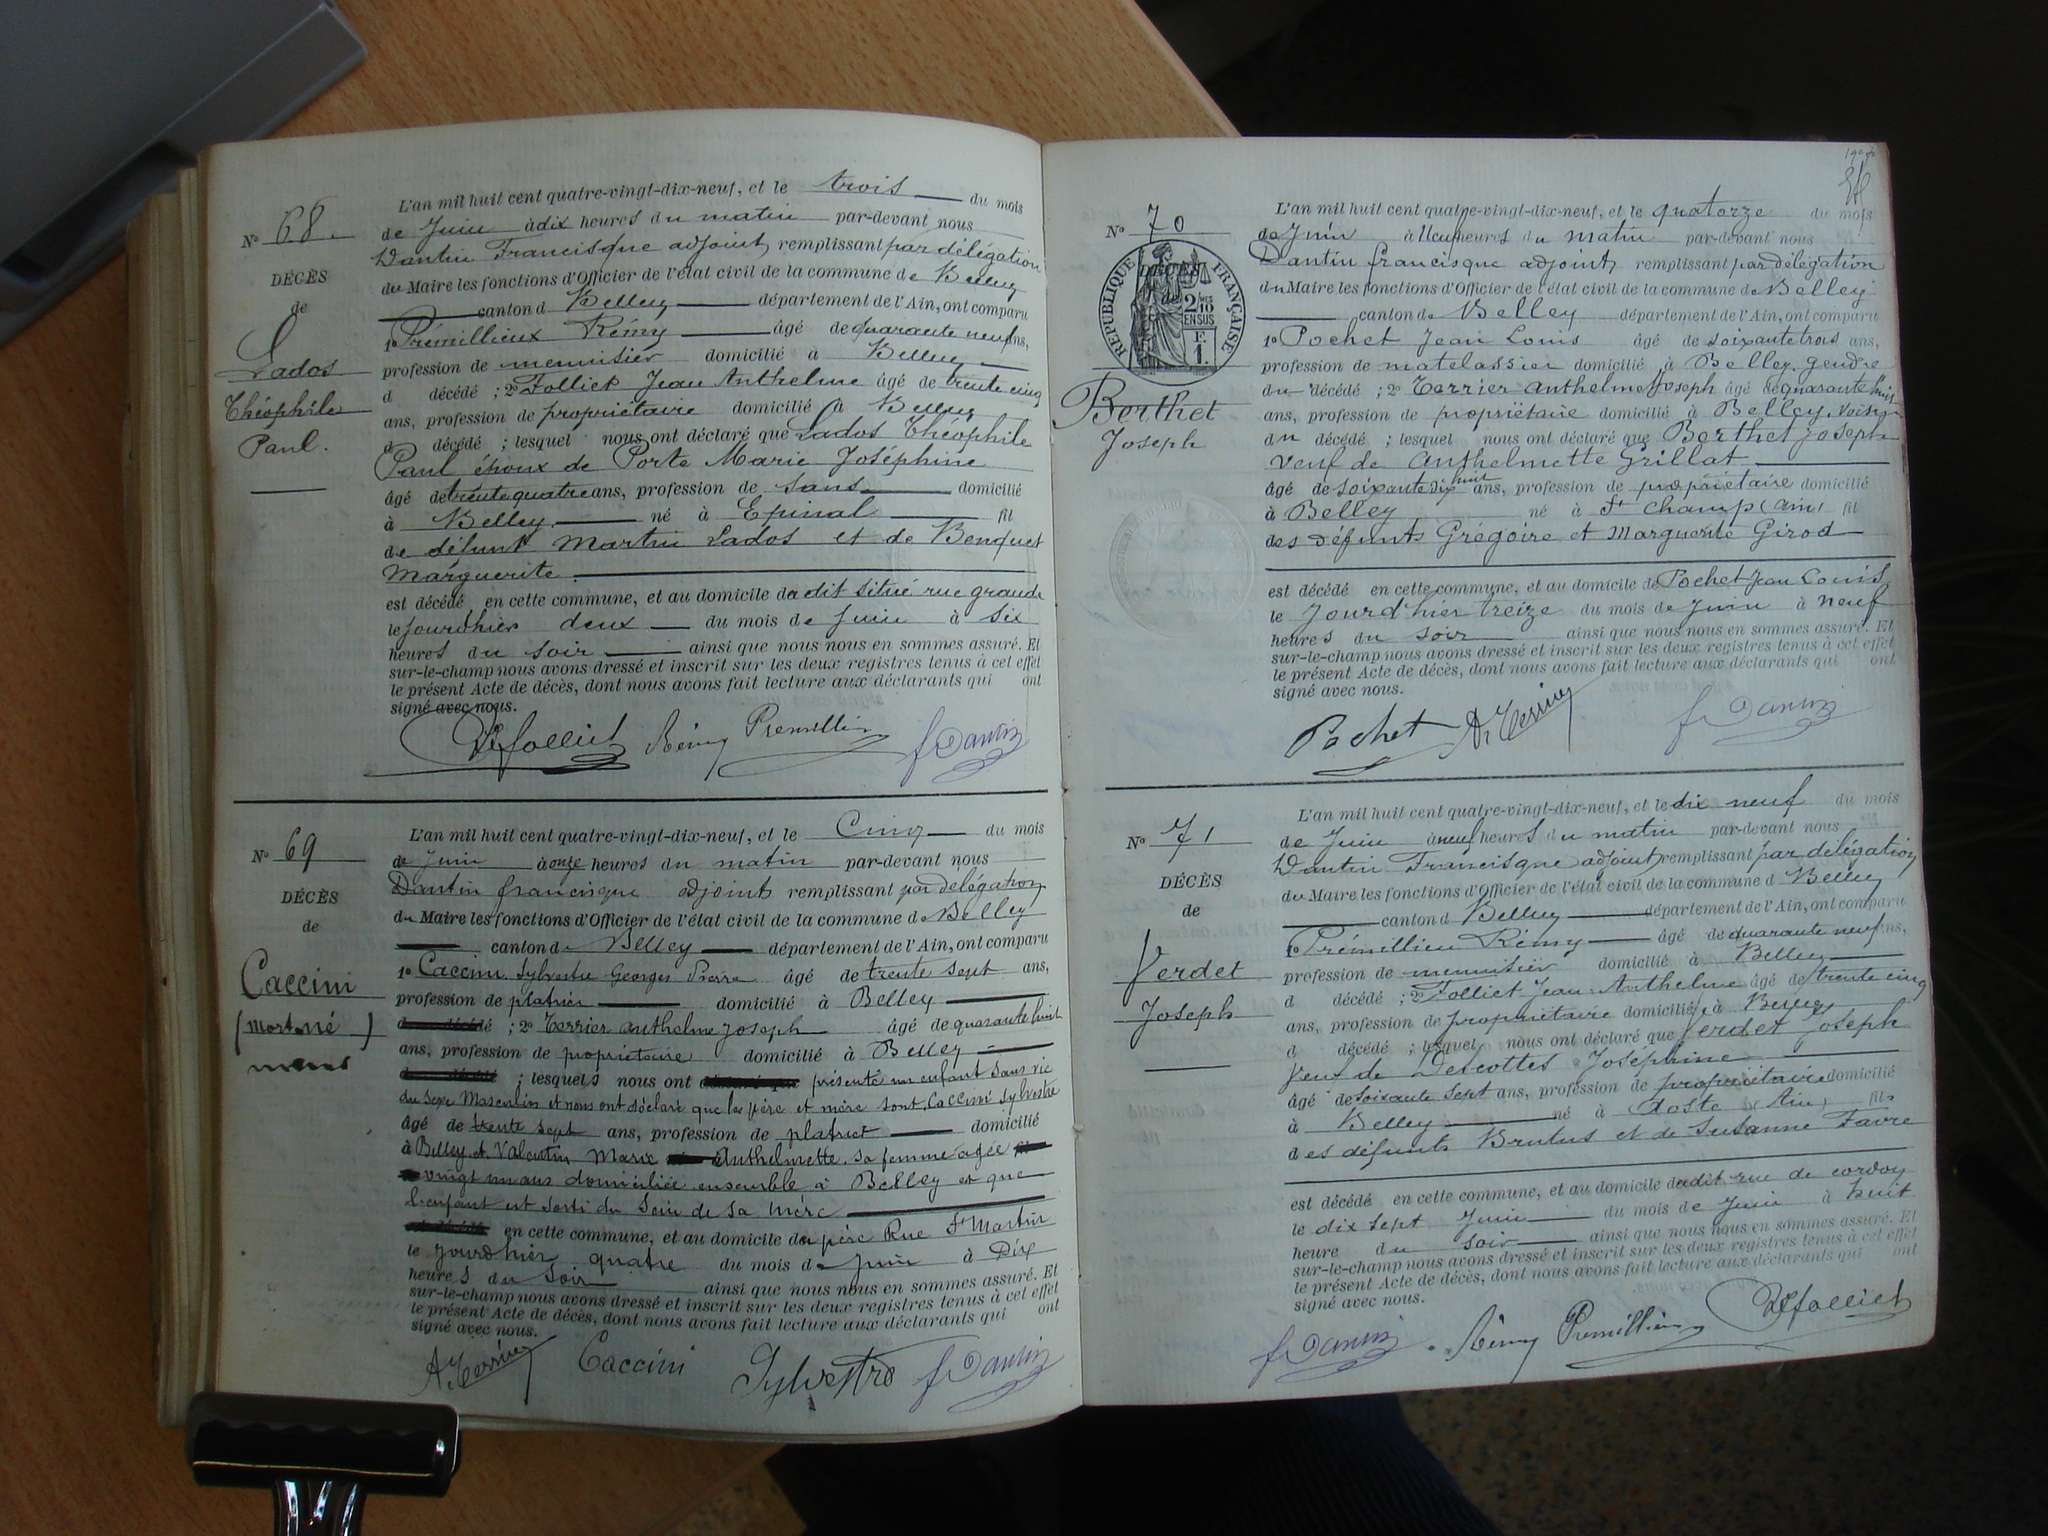 N° 68.
DÉCÈS
de
Lados
Théophile
Paul.
L'an mil huit cent quatre-vingt-dix-neuf, et le trois du mois
de Juin à dix heures du matin par-devant nous
Dantin Francisque adjoint remplissant par délégation
du Maire les fonctions d'Officier de l'état civil de la commune de Belley
canton d Belley département de l'Ain, ont comparu
1° Prémillieux Rémy âgé de quarante neuf ans,
profession de menuisier domicilié à Belley
d décédé ; 2° Folliet Jean Anthelme âgé de trente cinq
ans, profession de propriétaire domicilié à Belley
d décédé ; lesquel nous ont déclaré que Lados Théophile
Paul époux de Porte Marie Joséphine
âgé de trente quatre ans, profession de sans domicilié
à Belley né à Epinal fil
de défunt Martin Lados et de Benquet
Marguerite
est décédé en cette commune, et au domicile de dit situé rue grande
le jourdhier deux du mois de Juin à six
heures du soir ainsi que nous nous en sommes assuré. Et
sur-le-champ nous avons dressé et inscrit sur les deux registres tenus à cet effet
le présent Acte de décès, dont nous avons fait lecture aux déclarants qui ont
signé avec nous.
Folliet Rémy Premillieu f Dantin
N° 69
DÉCÈS
de
Caccini
(mort né)
L'an mil huit cent quatre-vingt-dix-neuf, et le Cinq du mois
de Juin à onze heures du matin par-devant nous
Dantin francisque adjoint remplissant par délégation
du Maire les fonctions d'Officier de l'état civil de la commune de Belley
canton de Belley département de l'Ain, ont comparu
1° Caccini Sylvestre Georges Pierre âgé de trente sept ans,
profession de platrier domicilié à Belley
2° Terrier Anthelme Joseph âgé de quarante huit
ans, profession de propriétaire domicilié à Belley
; lesquels nous ont présenté un enfant sans vie
du sexe Masculin et nous ont déclaré que les père et mère sont, Caccini Sylvestre
âgé de trente sept ans, profession de platrier domicilié
à Belley et Valentin Marie Anthelmette sa femme agée
vingt un ans domiciliée ensemble à Belley et que
l'enfant est sorti du Sein de sa mère
en cette commune, et au domicile du père Rue St Martin
le jourdhier quatre du mois de Juin à Dix
heures du soir ainsi que nous nous en sommes assuré. Et
sur-le-champ nous avons dressé et inscrit sur les deux registres tenus à cet effet
le présent Acte de décès, dont nous avons fait lecture aux déclarants qui ont
signé avec nous.
A. Terrier Caccini Sylvestro f Dantin
N° 70
DÉCÈS
de
RÉPUBLIQUE FRANÇAISE
2/10 EN SUS
F. 1.
Berthet
Joseph
L'an mil huit cent quatre-vingt-dix-neuf, et le quatorze du mois
de Juin à Neuf heures du matin par-devant nous
Dantin francisque adjoint remplissant par délégation
du Maire les fonctions d'Officier de l'état civil de la commune de Belley
canton de Belley département de l'Ain, ont comparu
1° Pochet Jean Louis âgé de soixante trois ans,
profession de matelassier domicilié à Belley, gendre
du décédé ; 2° Terrier Anthelme Joseph âgé de quarante huit
ans, profession de propriétaire domicilié à Belley, voisin
du décédé ; lesquel nous ont déclaré que Berthet Joseph
veuf de Anthelmette Grillat
âgé de soixante dix huit ans, profession de propriétaire domicilié
à Belley né à St Champ (Ain) fil
des défunts Grégoire et Marguerite Girod
est décédé en cette commune, et au domicile de Pochet Jean Louis
le Jourd'hier treize du mois de Juin à neuf
heures du soir ainsi que nous nous en sommes assuré. Et
sur-le-champ nous avons dressé et inscrit sur les deux registres tenus à cet effet
le présent Acte de décès, dont nous avons fait lecture aux déclarants qui ont
signé avec nous.
Pochet A. Terrier f Dantin
N° 71
DÉCÈS
de
Verdet
Joseph
L'an mil huit cent quatre-vingt-dix-neuf, et le dix neuf du mois
de Juin à neuf heures du matin par-devant nous
Dantin Francisque adjoint remplissant par délégation
du Maire les fonctions d'Officier de l'état civil de la commune d Belley
canton d Belley département de l'Ain, ont comparu
1° Prémillieu Rémy âgé de quarante neuf ans,
profession de menuisier domicilié à Belley
d décédé ; 2° Folliet Jean Anthelme âgé de trente cinq
ans, profession de propriétaire domicilié à Belley
d décédé ; lesquel nous ont déclaré que Verdet Joseph
veuf de Descottes Joséphine
âgé de soixante sept ans, profession de propriétaire domicilié
à Belley né à Aoste (Ain) fils
des défunts Brutus et de Susanne Favre
est décédé en cette commune, et au domicile de dit rue de cordoy
le dix sept Juin du mois de Juin à huit
heure du soir ainsi que nous nous en sommes assuré. Et
sur-le-champ nous avons dressé et inscrit sur les deux registres tenus à cet effet
le présent Acte de décès, dont nous avons fait lecture aux déclarants qui ont
signé avec nous.
f Dantin Rémy Premillieu Folliet